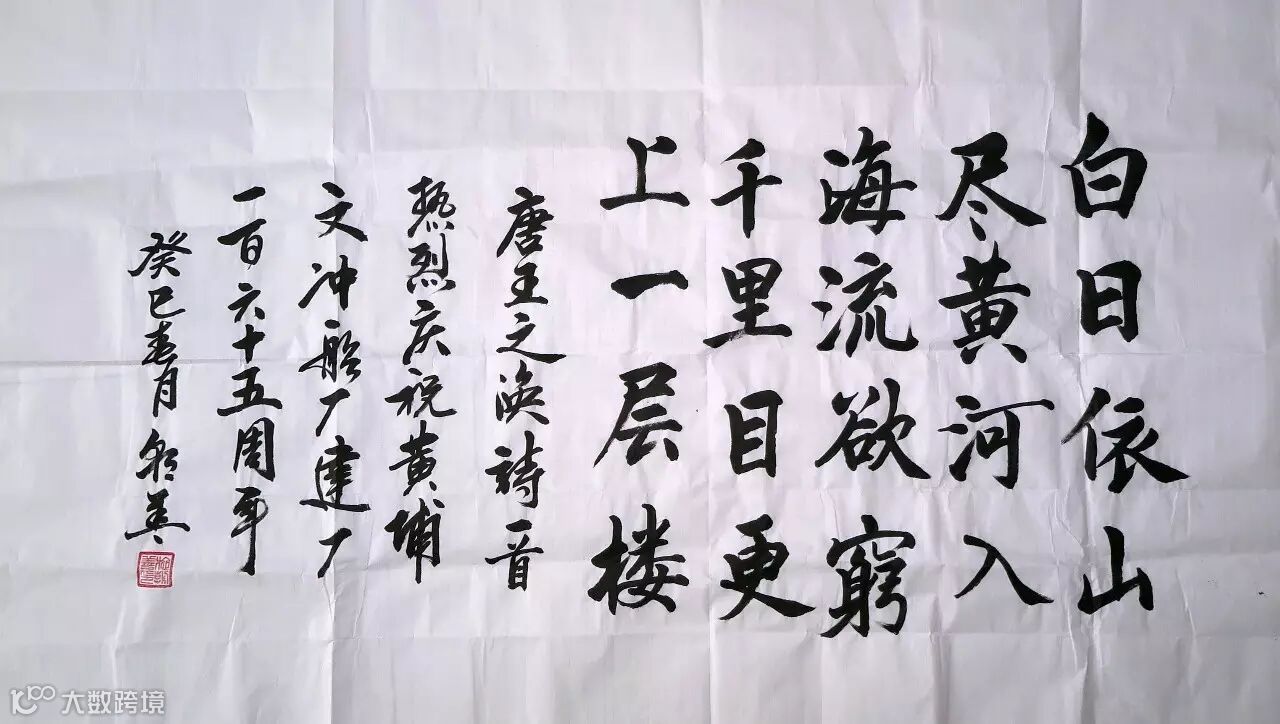 白日依山
尽黄河入
海流欲窮
千里目更
上一层楼
唐王之涣詩一首
热烈庆祝黄埔
文冲船厂建厂
一百六十五周年
癸巳春月
大数跨境